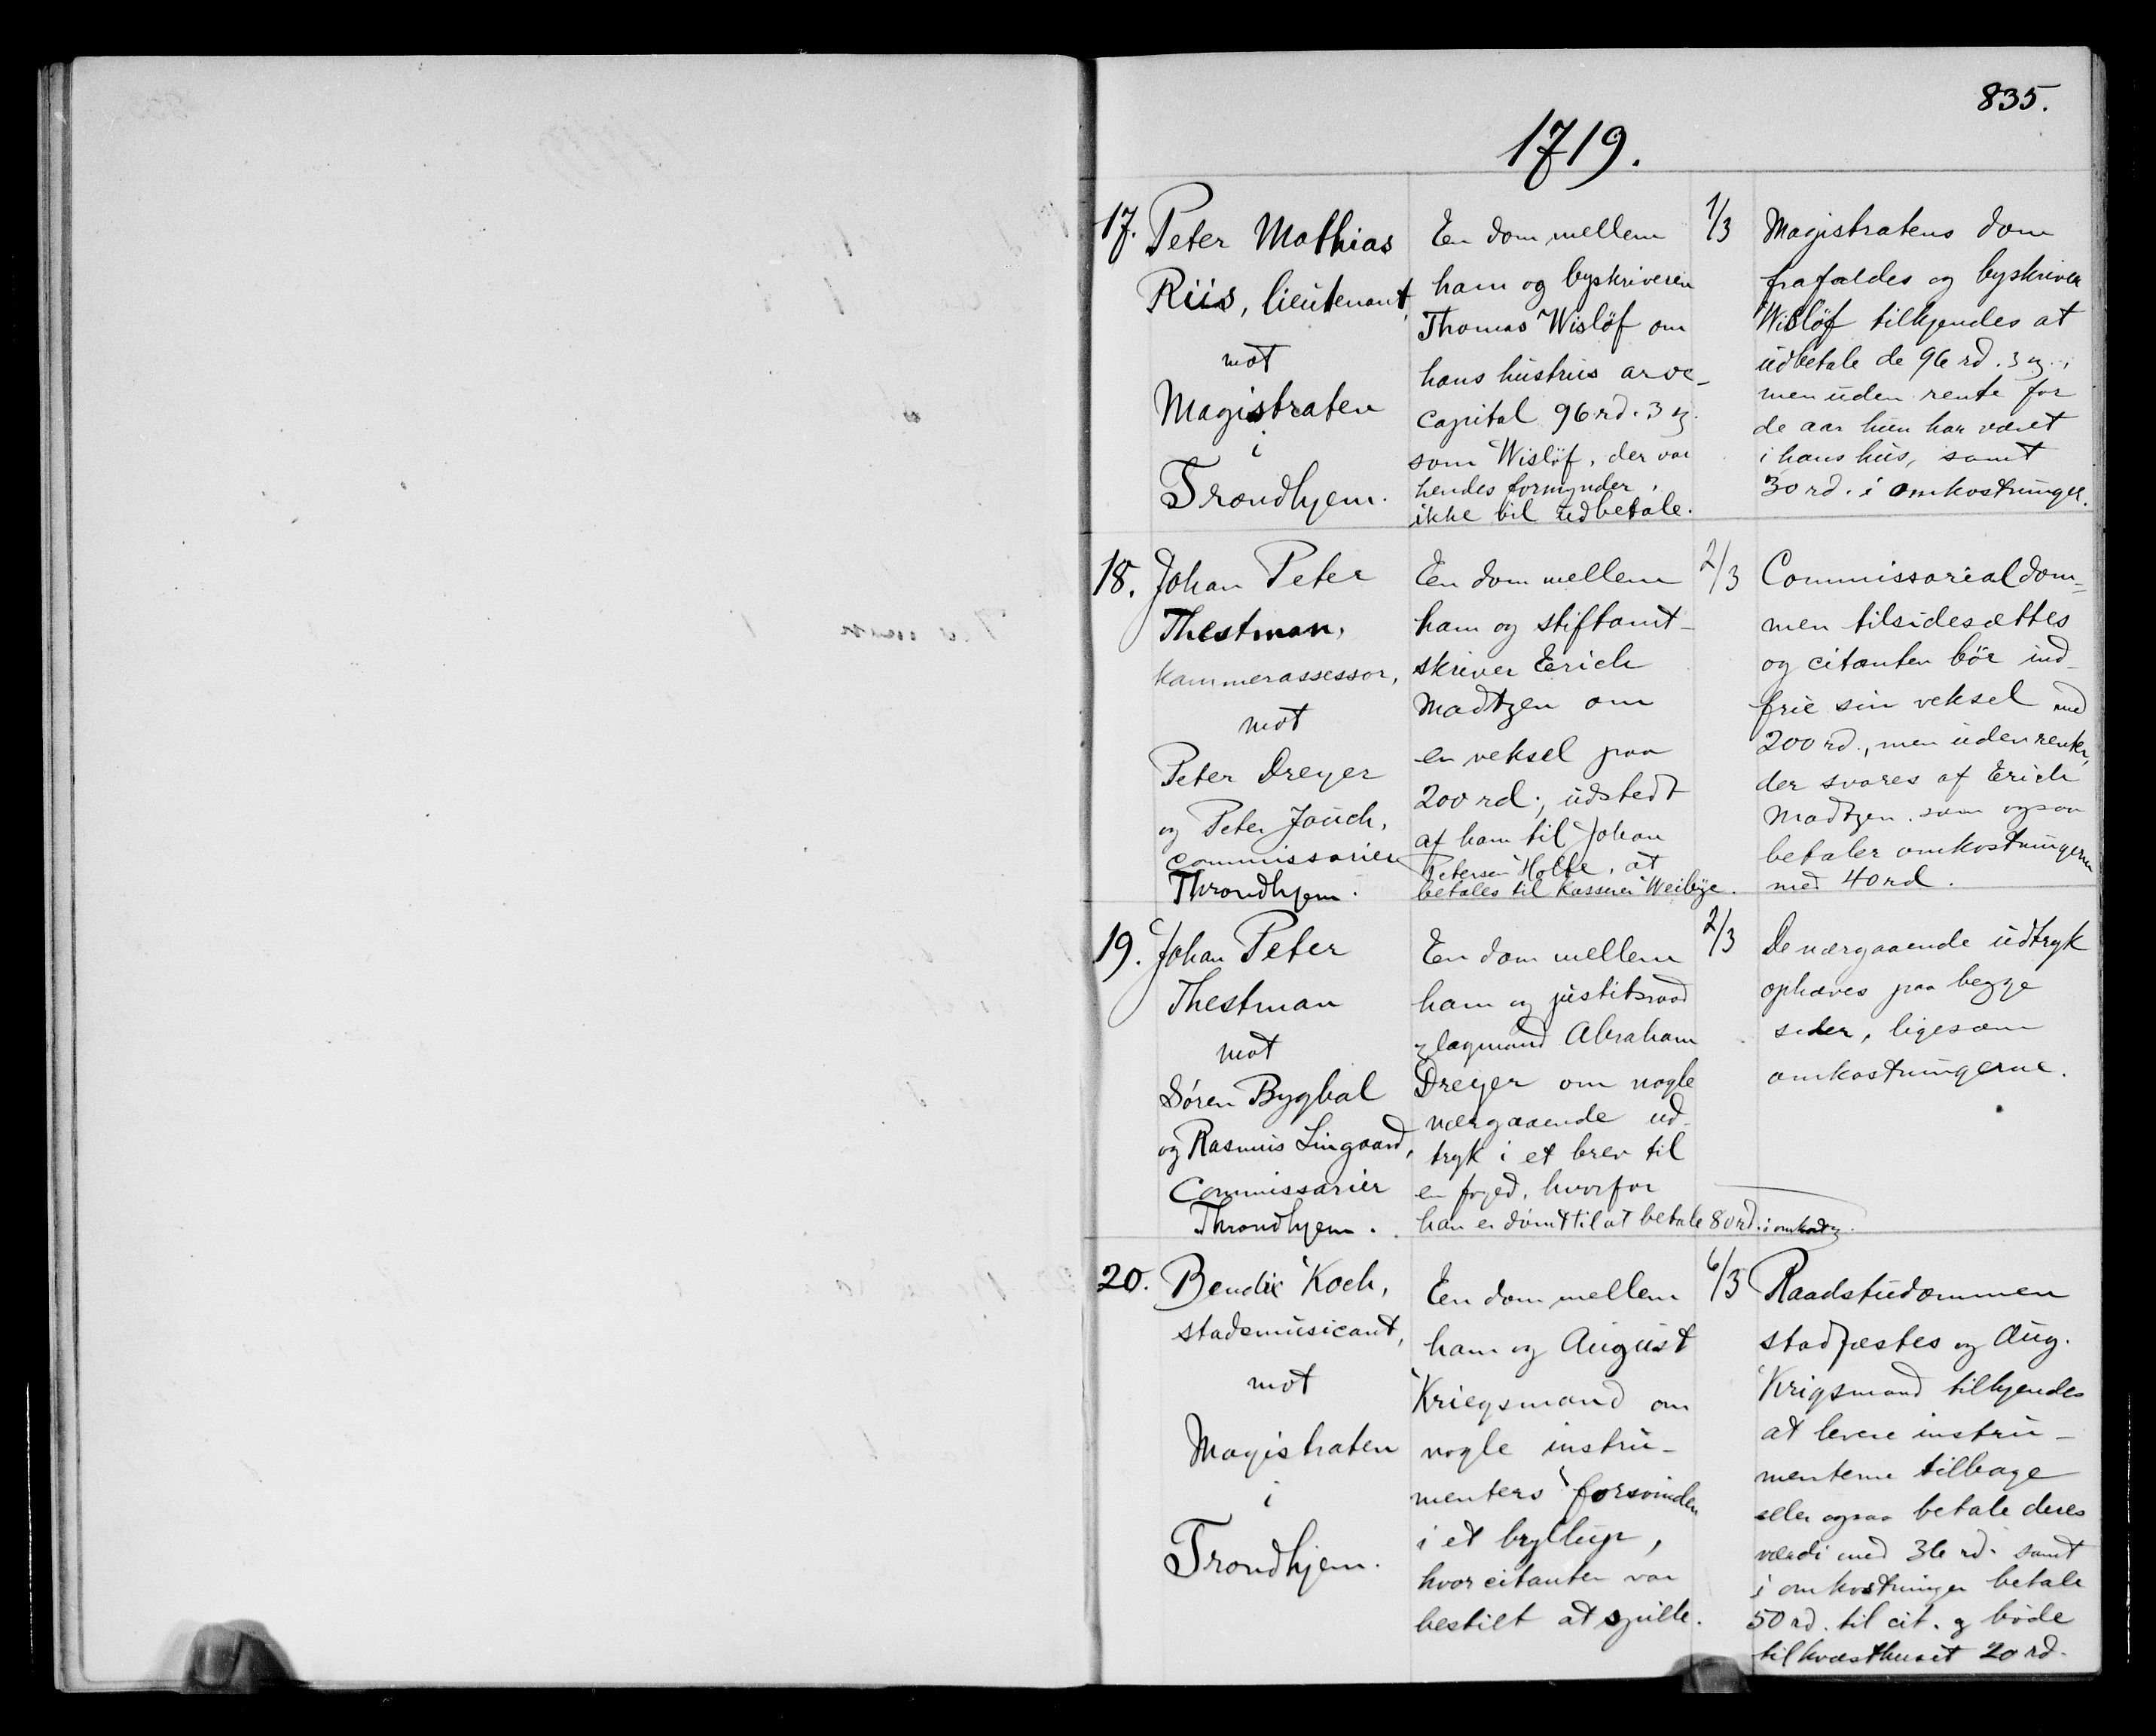 835.
1719.
17. Peter Mathias
Riis, lieutenant,
mot
Magistraten
i
Trondhjem.
En dom mellem
ham og byskriveren
Thomas Wislöf om
hans hustrus arve-
capital 96 rd. 3 ɱ.
som Wislöf, der var
hendes formynder,
ikke vil udbetale.
1/3
Magistratens dom
frafaldes og byskriver
Wislöf tilkjendes at
udbetale de 96 rd. 3 ɱ.
men uden rente for
de aar hun har været
i hans hus, samt
30 rd. i omkostninger.
18. Johan Peter
Thestman,
kammerassessor,
mot
Peter Dreyer
og Peter Jauch,
commissarier
Throndhjem.
En dom mellem
ham og stiftamt-
skriver Erich
Madtzen om
en veksel paa
200 rd., udstedt
af ham til Johan
Petersen Holte, at
betales til kasserer Weibye.
2/3
Commissorialdom-
men tilsidesættes
og citanten bör ind-
frie sin veksel med
200 rd., men uden renter,
der svares af Erich
Madtzen som ogsaa
betaler omkostningerne
med 40 rd.
19. Johan Peter
Thestman
mot
Sören Bygbal
og Rasmus Lingaard,
Commissarier
Throndhjem.
En dom mellem
ham og justitsraad
og lagmand Abraham
Dreyer om nogle
nærgaaende ud-
tryk i et brev til
en foged, hvorfor
han er dömt til at betale 80 rd. i omkostn.
2/3
De nærgaaende udtryk
ophæves paa begge
sider, ligesom
omkostningerne.
20. Bendix Koch,
stadsmusicant,
mot
Magistraten
i
Trondhjem.
En dom mellem
ham og August
Kriegsmand om
nogle instru-
menters forsvinden
i et bryllup,
hvor citanten var
bestilt at spille.
6/3
Raadstudommen
stadfæstes og Aug.
Krigsmand tilkjendes
at levere instru-
menterne tilbage
eller ogsaa betale deres
værdi med 36 rd. samt
i omkostninger betale
50 rd. til cit. og böde
til kvæsthuset 20 rd.